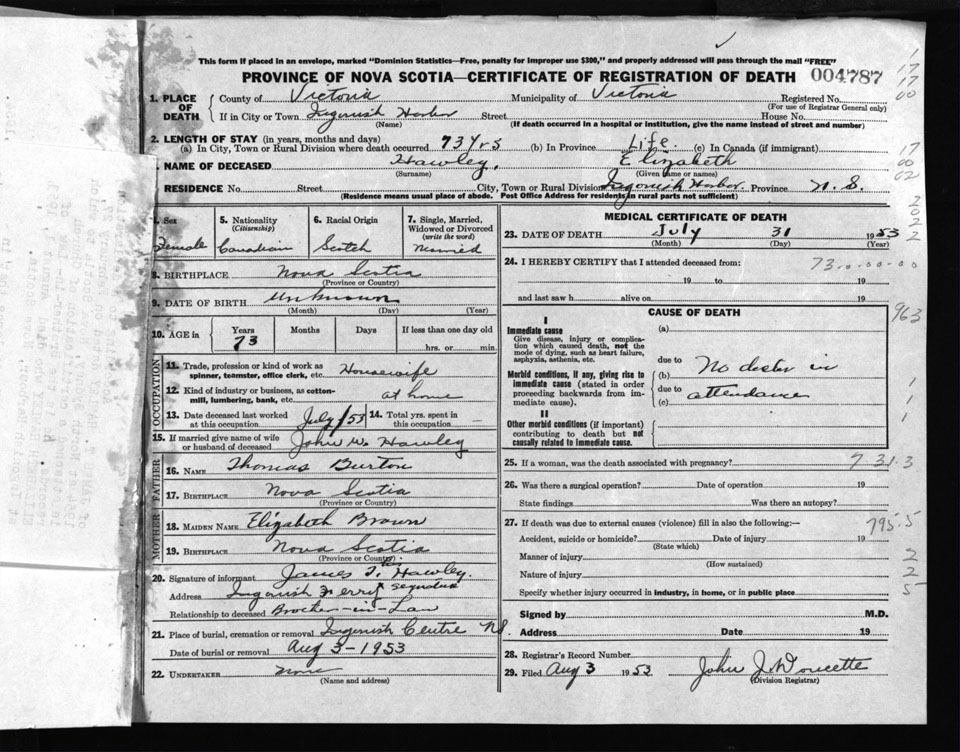 This form if placed in an envelope, marked "Dominion Statistics—Free, penalty for improper use $300," and properly addressed will pass through the mail "FREE"
PROVINCE OF NOVA SCOTIA—CERTIFICATE OF REGISTRATION OF DEATH 004787
1. PLACE OF DEATH County of Victoria Municipality of Victoria Registered No.
(For use of Registrar General only)
If in City or Town Ingonish Harbor Street House No.
(Name) (If death occurred in a hospital or institution, give the name instead of street and number)
2. LENGTH OF STAY (in years, months and days)
(a) In City, Town or Rural Division where death occurred 73 Yrs (b) In Province Life. (c) In Canada (if immigrant)
NAME OF DECEASED Hawley, Elizabeth
(Surname) (Given name or names)
RESIDENCE No. Street City, Town or Rural Division Ingonish Harbor Province N. S.
(Residence means usual place of abode. Post Office Address for residents in rural parts not sufficient)
4. Sex Female
5. Nationality (Citizenship) Canadian
6. Racial Origin Scotch
7. Single, Married, Widowed or Divorced (write the word) Married
8. BIRTHPLACE Nova Scotia
(Province or Country)
9. DATE OF BIRTH Unknown
(Month) (Day) (Year)
10. AGE in Years 73 Months Days If less than one day old hrs. or min.
OCCUPATION
11. Trade, profession or kind of work as spinner, teamster, office clerk, etc. Housewife
12. Kind of industry or business, as cotton-mill, lumbering, bank, etc. at home
13. Date deceased last worked at this occupation July/53 14. Total yrs. spent in this occupation —
15. If married give name of wife or husband of deceased John W. Hawley
FATHER
16. NAME Thomas Burton
17. BIRTHPLACE Nova Scotia
(Province or Country)
MOTHER
18. MAIDEN NAME Elizabeth Brown
19. BIRTHPLACE Nova Scotia
(Province or Country)
20. Signature of informant James T. Hawley.
Address Ingonish Ferry
Relationship to deceased Brother-in-Law
21. Place of burial, cremation or removal Ingonish Centre NS.
Date of burial or removal Aug 3-1953
22. UNDERTAKER none
(Name and address)
MEDICAL CERTIFICATE OF DEATH
23. DATE OF DEATH July 31 1953
(Month) (Day) (Year)
24. I HEREBY CERTIFY that I attended deceased from:
19 to 19
and last saw h alive on 19
CAUSE OF DEATH
I
Immediate cause
Give disease, injury or complication which caused death, not the mode of dying, such as heart failure, asphyxia, asthenia, etc.
(a)
due to
Morbid conditions, if any, giving rise to immediate cause (stated in order proceeding backwards from immediate cause).
(b) No doctor in
due to
(c) attendance
II
Other morbid conditions (if important) contributing to death but not causally related to immediate cause.
25. If a woman, was the death associated with pregnancy?
26. Was there a surgical operation? Date of operation 19
State findings Was there an autopsy?
27. If death was due to external causes (violence) fill in also the following:—
Accident, suicide or homicide? Date of injury 19
(State which)
Manner of injury
(How sustained)
Nature of injury
Specify whether injury occurred in industry, in home, or in public place
795.5
963
Signed by M.D.
Address Date 19
28. Registrar's Record Number
29. Filed Aug 3 1953 John J. Doucette
(Division Registrar)